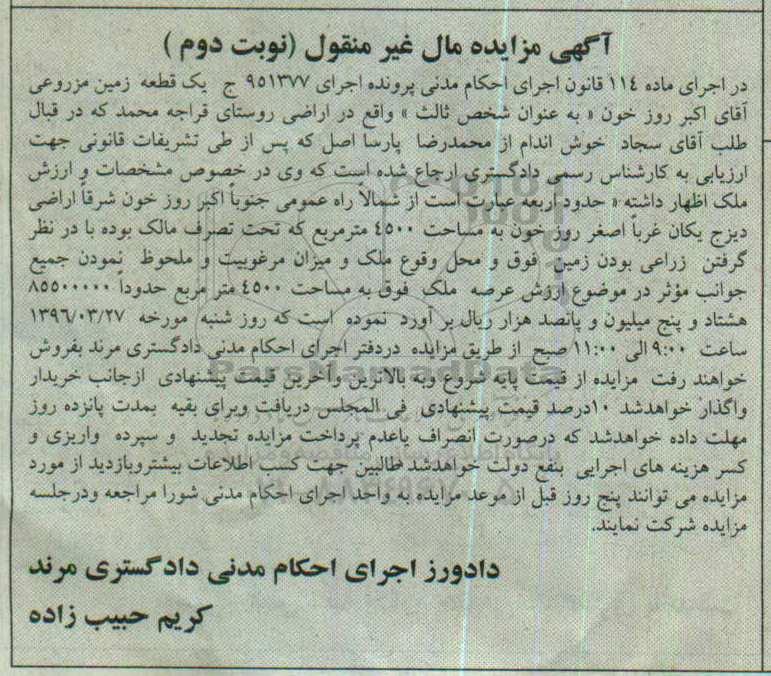 آگهی مزایده مال غیر منقول (نوبت دوم )
در اجرای ماده ۱۱٤ قانون اجرای احکام مدنی پرونده اجرای ۹۵۱۳۷۷ ج یک قطعه زمین مزروعی
آقای اکبر روز خون « به عنوان شخص ثالث » واقع در اراضی روستای قراجه محمد که در قبال
طلب آقای سجاد خوش اندام از محمدرضا پارسا اصل که پس از طی تشریفات قانونی جهت
ارزیابی به کارشناس رسمی دادگستری ارجاع شده است که وی در خصوص مشخصات و ارزش
ملک اظهار داشته « حدود اربعه عبارت است از شمالاً راه عمومی جنوباً اکبر روز خون شرقاً اراضی
دیزج یکان غرباً اصغر روز خون به مساحت ٤۵۰۰ مترمربع که تحت تصرف مالک بوده با در نظر
گرفتن زراعی بودن زمین فوق و محل وقوع ملک و میزان مرغوبیت و ملحوظ نمودن جمیع
جوانب مؤثر در موضوع ارزش عرصه ملک فوق به مساحت ٤۵۰۰ متر مربع حدوداً ۸۵۵۰۰۰۰۰
هشتاد و پنج میلیون و پانصد هزار ریال بر آورد نموده است که روز شنبه مورخه ۱۳۹٦/۰۳/۲۷
ساعت ۹:۰۰ الی ۱۱:۰۰ صبح از طریق مزایده دردفتر اجرای احکام مدنی دادگستری مرند بفروش
خواهند رفت مزایده از قیمت پایه شروع وبه بالاترین وآخرین قیمت پیشنهادی ازجانب خریدار
واگذار خواهدشد ۱۰درصد قیمت پیشنهادی فی المجلس دریافت وبرای بقیه بمدت پانزده روز
مهلت داده خواهدشد که درصورت انصراف یاعدم پرداخت مزایده تجدید و سپرده واریزی و
کسر هزینه های اجرایی بنفع دولت خواهدشد طالبین جهت کسب اطلاعات بیشتروبازدید از مورد
مزایده می توانند پنج روز قبل از موعد مزایده به واحد اجرای احکام مدنی شورا مراجعه ودرجلسه
مزایده شرکت نمایند.
دادورز اجرای احکام مدنی دادگستری مرند
کریم حبیب زاده
ParsNamadData